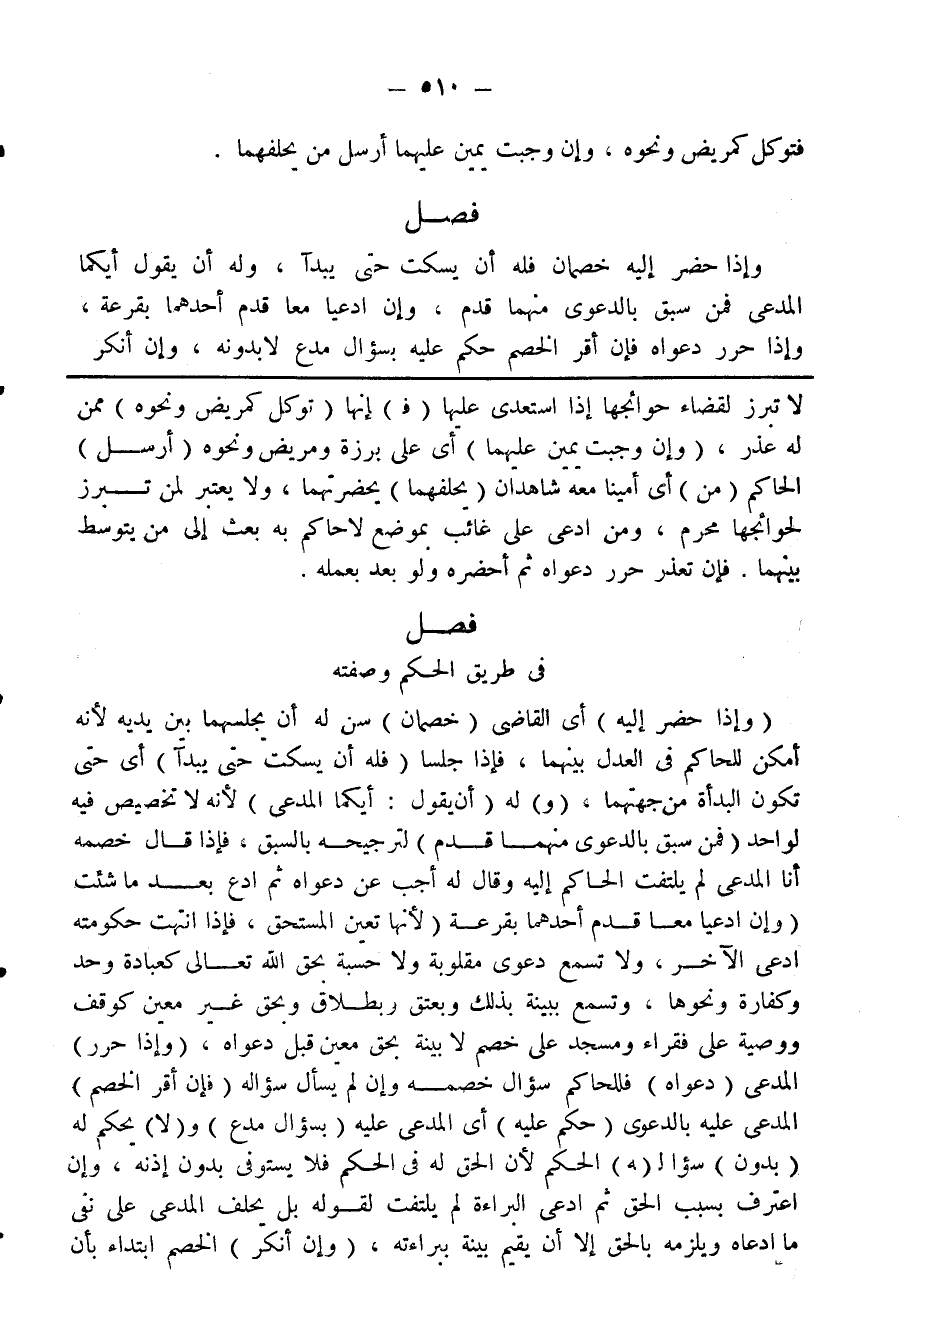 — ٥١٠ —
فتوكل كمريض ونحوه ، وإن وجبت يمين عليهما أرسل من يحلفهما .
فصـــل
وإذا حضر إليه خصمان فله أن يسكت حتى يبدآ ، وله أن يقول أيكما
المدعى فمن سبق بالدعوى منهما قدم ، وإن ادعيا معا قدم أحدهما بقرعة ،
وإذا حرر دعواه فإن أقر الخصم حكم عليه بسؤال مدع لابدونه ، وإن أنكر
لا تبرز لقضاء حوائجها إذا استعدى عليها ( فـ ) إنها ( توكل كمريض ونحوه ) ممن
له عذر ، ( وإن وجبت يمين عليهما ) أى على برزة ومريض ونحوه ( أرســـل )
الحاكم ( من ) أى أمينا معه شاهدان ( يحلفهما ) بحضرتهما ، ولا يعتبر لمن تـــبرز
لحوائجها محرم ، ومن ادعى على غائب بموضع لاحاكم به بعث إلى من يتوسط
بينهما . فإن تعذر حرر دعواه ثم أحضره ولو بعد بعمله .
فصـــل
فى طريق الحكم وصفته
( وإذا حضر إليه ) أى القاضى ( خصمان ) سن له أن يجلسهما بين يديه لأنه
أمكن للحاكم فى العدل بينهما ، فإذا جلسا ( فله أن يسكت حتى يبدآ ) أى حتى
تكون البدأة من جهتهما ، ( و ) له ( أن يقول : أيكما المدعى ) لأنه لا تخصيص فيه
لواحد ( فمن سبق بالدعوى منهمـــا قـــدم ) لترجيحـــه بالسبق ، فإذا قـــال خصمه
أنا المدعى لم يلتفت الحاكم إليه وقال له أجب عن دعواه ثم ادع بعـــد ما شئت
( وإن ادعيا معـــا قـــدم أحدهما بقرعـــة ( لأنها تعين المستحق ، فإذا انتهت حكومته
ادعى الآخـــر ، ولا تسمع دعوى مقلوبة ولا حسبة بحق الله تعـــالى كعبادة وحد
وكفارة ونحوها ، وتسمع ببينة بذلك وبعتق ربطـــلاق وبحق غـــير معين كوقف
ووصية على فقراء ومسجد على خصم لا بينة بحق معين قبل دعواه ، ( وإذا حرر )
المدعى ( دعواه ) فللحاكم سؤال خصمـــه وإن لم يسأل سؤاله ( فإن أقر الخصم )
المدعى عليه بالدعوى ( حكم عليه ) أى المدعى عليه ( بسؤال مدع ) و( لا ) يحكم له
( بدون ) سؤا لـ( ـه ) الحكم لأن الحق له فى الحكم فلا يستوفى بدون إذنه ، وإن
اعترف بسبب الحق ثم ادعى البراءة لم يلتفت لقـــوله بل يحلف المدعى على نفى
ما ادعاه ويلزمه بالحق إلا أن يقيم بينة ببراءته ، ( وإن أنكر ) الخصم ابتداء بأن